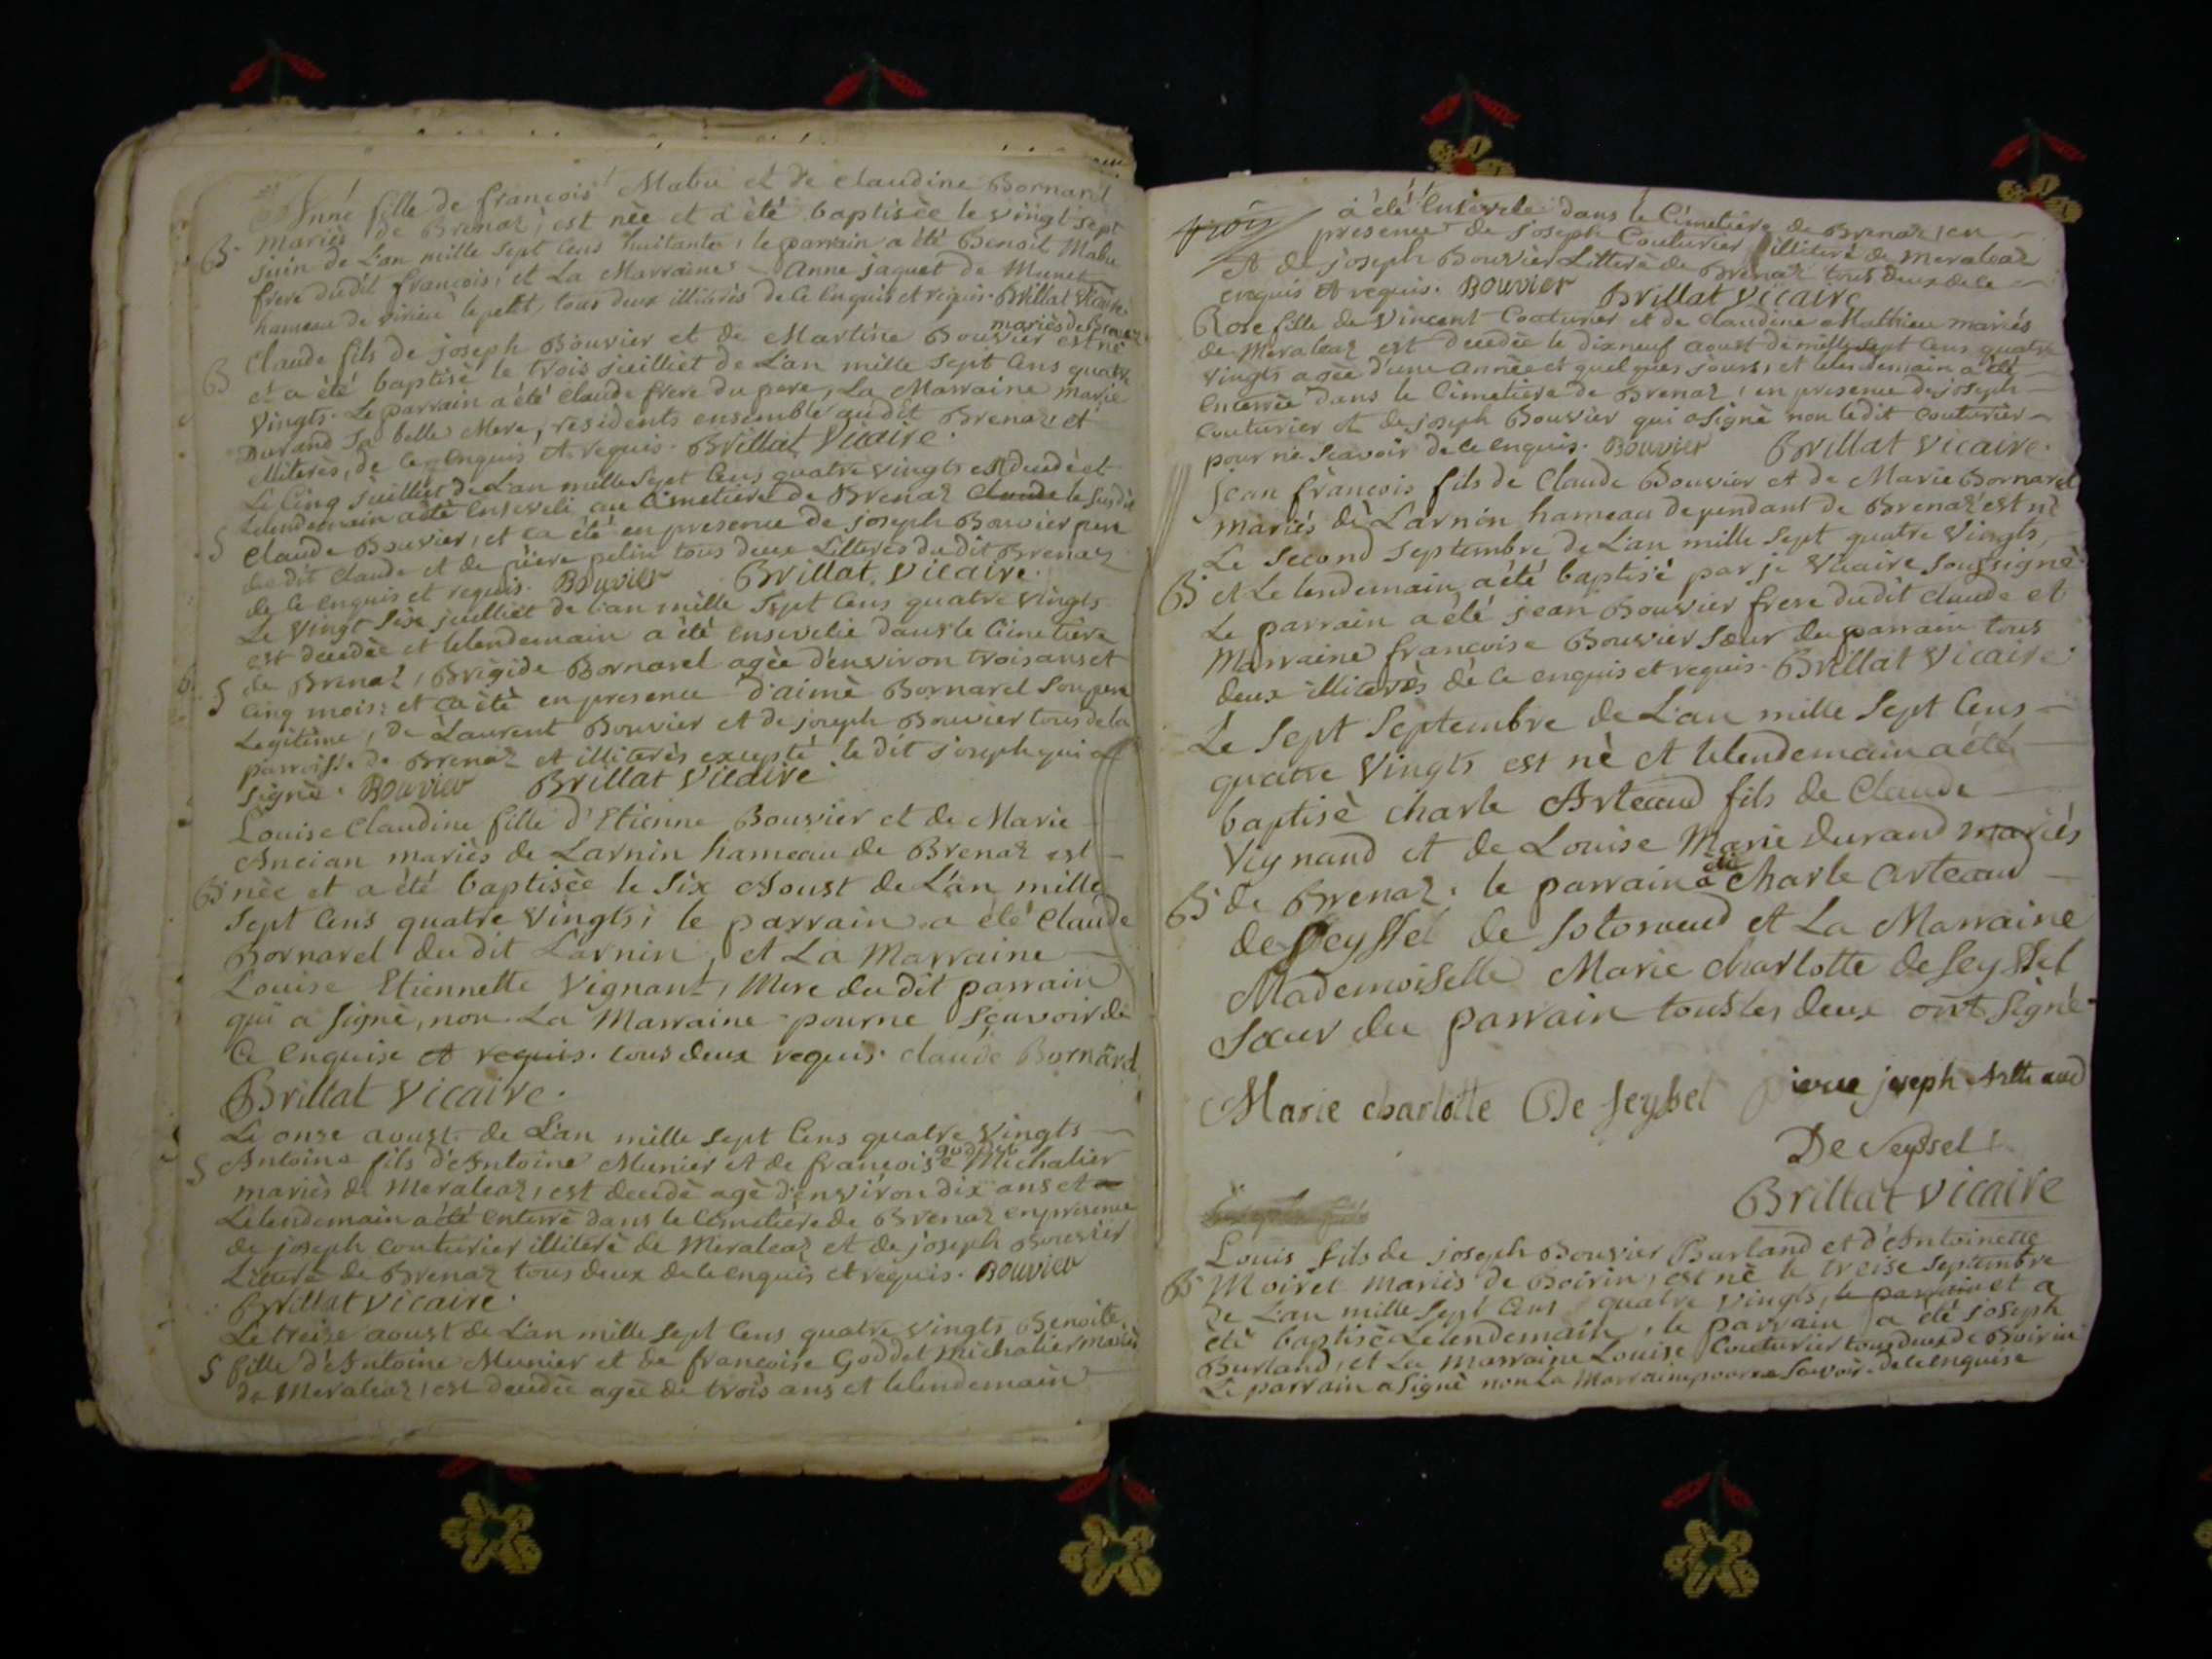 Anne fille de françois Mabu et de Claudine Bornard
mariés de Brenaz, est née et a été baptisée le vingt sept
B juin de L'an mille sept Cens huitante, le parrain a été Benoit Mabu
frere du dit françois, et La Marraine Anne jaquet de Munet
hameau de virieu le petit, tous deux illiterés de Ce Enquis et requis. Brillat Vicaire
mariés de Brenaz
B Claude fils de joseph Bouvier et de Martine Bouvier est né
et a été baptisé le trois juilliet de L'an mille Sept Cens quatre
vingts. Le parrain a été Claude frere du pere, La Marraine marie
Durand Sa belle Mere, residents ensemble au dit Brenaz et
illiterés, de Ce Enquis et requis. Brillat Vicaire.
Le Cinq juilliet de L'an mille Sept Cens quatre vingts est decedé et
Lelendemain a été Enseveli au Cimetiere de Brenaz Claude le Susdit
S Claude Bouvier, et ca été en presence de joseph Bouvier pere
du dit Claude et de piere pelin tous deux Litterés du dit Brenaz
de Ce Enquis et requis. Bouvier Brillat Vicaire.
Le Vingt Six juilliet de L'an mille Sept Cens quatre vingts
est decedée et lelendemain a été ensevelie dans le Cimetiere
de Brenaz, Brigide Bornarel agée d'environ trois ans et
S Cinq mois: et Ca été en presence d'aimé Bornarel Son pere
Legitime, de Laurent Bouvier et de joseph Bouvier tous de la
parroisse de Brenaz et illiterés excepté le dit joseph qui a
Signé. Bouvier Brillat Vicaire.
Louise Claudine fille d'Etienne Bouvier et de Marie
Ancian mariés de Larnin hameau de Brenaz est
B née et a été baptisée le Six Aoust de L'an mille
Sept Cens quatre Vingts; le parrain a été Claude
Bornarel du dit Larnin, et La Marraine
Louise Etiennette Vignant, Mere du dit parrain
qui a Signé, non La Marraine pour ne Sçavoir de
Ce Enquise et requis. tous deux requis. Claude Bornard
Brillat Vicaire.
Le onze aoust de L'an mille Sept Cens quatre Vingts
goddet
S Antoine fils d'Antoine Munier et de françoise Michalier
mariés de Meraleaz, est decedé agé d'environ dix ans et a
Lelendemain a été Enterré dans le Cimetiere de Brenaz en presence
de joseph Couturier illiteré de Meraleaz et de joseph Bouvier
Litteré de Brenaz tous deux de Ce enquis et requis. Bouvier
Brillat Vicaire.
Le treize aoust de L'an mille Sept Cens quatre vingts Benoite
S fille d'Antoine Munier et de francoise Goddet Michalier mariés
de Meraleaz, est decedée agée de trois ans et lelendemain
trois
a été Ensevelie dans le Cimetiere de Brenaz, en
presence de Joseph Couturier illiteré de Meraleaz
et de joseph Bouvier Litteré de Brenaz tous deux de Ce
enquis et requis. Bouvier Brillat Vicaire
Rose fille de Vincent Couturier et de Claudine Mathieu mariés
de Meraleaz est decedée le dixneuf aoust de mille Sept Cens quatre
Vingts agée d'une Année et quelques jours, et lelendemain a été
Enterrée dans le Cimetiere de Brenaz, en presence de joseph
Couturier et de joseph Bouvier qui a Signé non le dit Couturier
pour ne Scavoir de Ce enquis. Bouvier Brillat Vicaire.
jean françois fils de Claude Bouvier et de Marie Bornarel
mariés de Larnin hameau dependant de Brenaz est né
Le Second Septembre de L'an mille Sept quatre Vingts,
B et Le lendemain a été baptisé par je Vicaire Soussigné
Le parrain a été jean Bouvier frere du dit Claude et
Marraine françoise Bouvier Sœur du parrain tous
deux illiterés de Ce enquis et requis. Brillat Vicaire.
Le Sept Septembre de L'an mille Sept Cens
quatre Vingts est né et lelendemain a été
baptisé Charle Arteaud fils de Claude
Vignand et de Louise Marie Durand mariés
été
B de Brenaz. le parrain a Charle Arteaud
de Seyssel de et La Marraine
Mademoiselle Marie Charlotte de Seyssel
Sœur du parrain tous les deux ont Signé.
Marie charlotte De Seyssel pierre joseph Artheaud
De Seyssel
Brillat Vicaire
Louis fils de joseph Bouvier Burland et d'Antoinette
B Moiret mariés de Boirin, est né le treise Septembre
de L'an mille Sept Cens quatre Vingts, le parrain et a
été baptisé Lelendemain, le parrain a été joseph
Burland, et La Marraine Louise Couturier tous deux de Boirin
Le parrain a Signé non La Marraine pour ne Savoir de Ce enquise